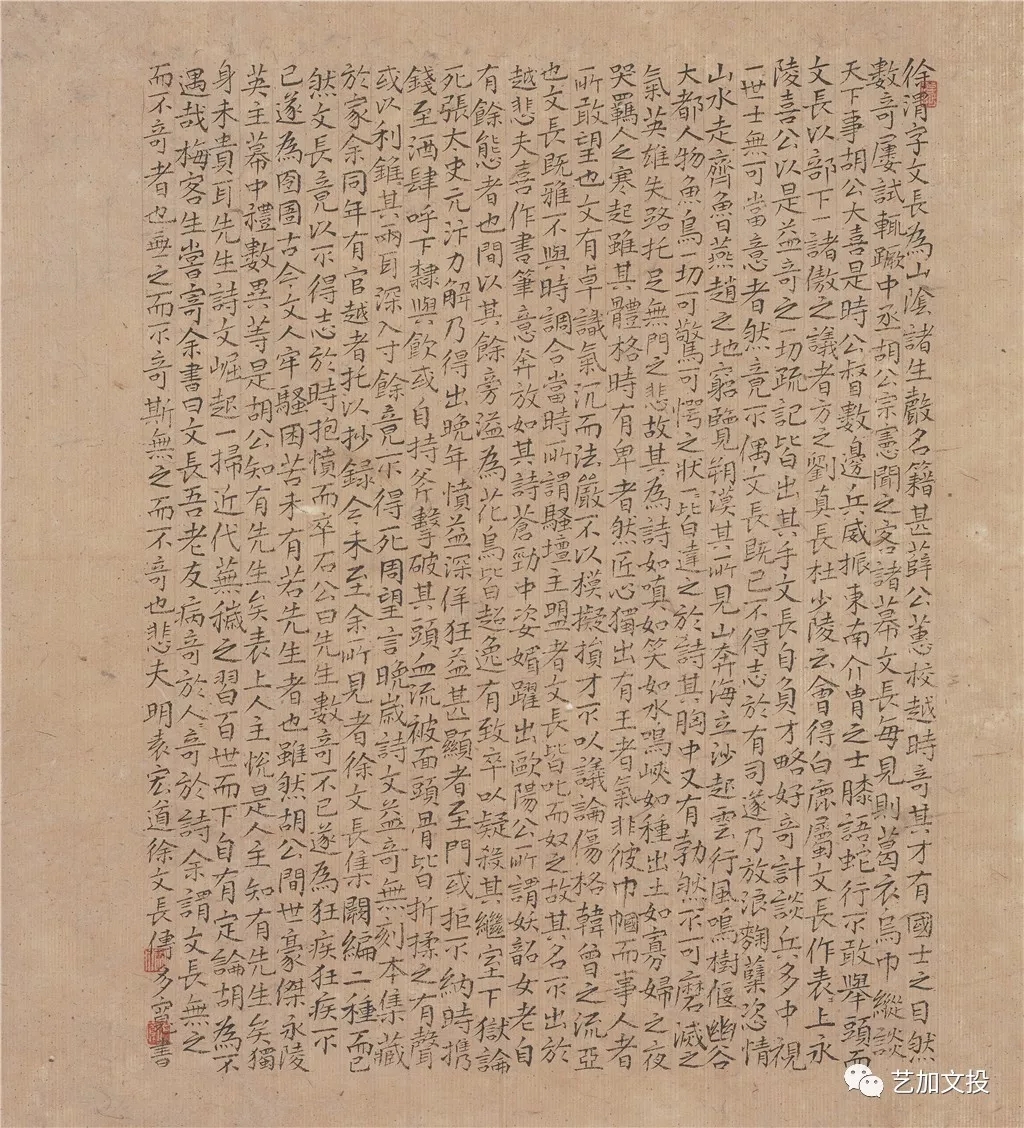 徐渭字文長為山陰諸生聲名籍甚薛公蕙校越時奇其才有國士之目然
數奇屢試輒蹶中丞胡公宗憲聞之客諸幕文長每見則葛衣烏巾縱談
天下事胡公大喜是時公督數邊兵威振東南介冑之士膝語蛇行不敢舉頭而
文長以部下一諸傲之議者方之劉真長杜少陵云會得白鹿屬文長作表表上永
陵喜公以是益奇之一切疏記皆出其手文長自負才略好奇計談兵多中視
一世士無可當意者然竟不偶文長既已不得志於有司遂乃放浪麴糵恣情
山水走齊魯燕趙之地窮覽朔漠其所見山奔海立沙起雲行風鳴樹偃幽谷
大都人物魚鳥一切可驚可愕之狀一一皆達之於詩其胸中又有勃然不可磨滅之
氣英雄失路托足無門之悲故其為詩如嗔如笑如水鳴峽如種出土如寡婦之夜
哭羈人之寒起雖其體格時有卑者然匠心獨出有王者氣非彼巾幗而事人者
所敢望也文有卓識氣沉而法嚴不以模擬損才不以議論傷格韓曾之流亞
也文長既雅不與時調合當時所謂騷壇主盟者文長皆叱而奴之故其名不出於
越悲夫喜作書筆意奔放如其詩蒼勁中姿媚躍出歐陽公所謂妖韶女老自
有餘態者也間以其餘旁溢為花鳥皆超逸有致卒以疑殺其繼室下獄論
死張太史元汴力解乃得出晚年憤益深佯狂益甚顯者至門或拒不納時攜
錢至酒肆呼下隸與飲或自持斧擊破其頭血流被面頭骨皆折揉之有聲
或以利錐其兩耳深入寸餘竟不得死周望言晚歲詩文益奇無刻本集藏
於家余同年有官越者托以抄録今未至余所見者徐文長集闕編二種而已
然文長竟以不得志於時抱憤而卒石公曰先生數奇不已遂為狂疾狂疾不
已遂為囹圄古今文人牢騷困苦未有若先生者也雖然胡公間世豪傑永陵
英主幕中禮數異等是胡公知有先生矣表上人主悅是人主知有先生矣獨
身未貴耳先生詩文崛起一掃近代蕪穢之習百世而下自有定論胡為不
遇哉梅客生嘗寄余書曰文長吾老友病奇於人奇於詩余謂文長無之
而不奇者也無之而不奇斯無之而不奇也悲夫 明袁宏道徐文長傳 多寬書
艺加文投